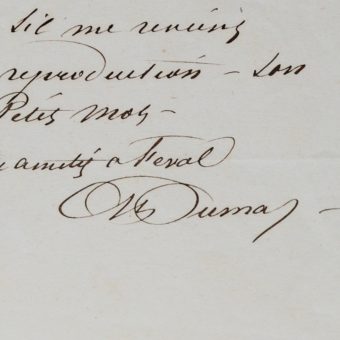 sil me renving
reproduction – son
Petit mot –
amitiés a Feval
Al Dumas –